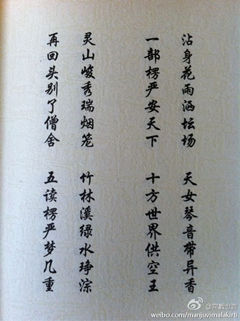 沾身花雨洒坛场 天女琴音带异香
一部楞严安天下 十方世界供空王
灵山峻秀瑞烟笼 竹林溪绿水琤淙
再回头别了僧舍 五读楞严梦几重
weibo.com/manjuvimalakirti